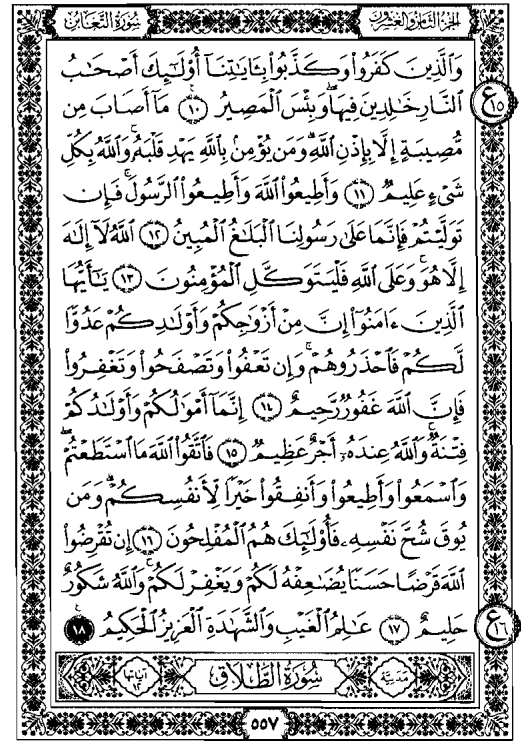 الجزء الثامن والعشرون
سورة التغابن
وَٱلَّذِينَ كَفَرُواْ وَكَذَّبُواْ بِـَٔايَٰتِنَآ أُوْلَٰٓئِكَ أَصْحَٰبُ
ٱلنَّارِ خَٰلِدِينَ فِيهَا وَبِئْسَ ٱلْمَصِيرُ ١٠ مَآ أَصَابَ مِن
مُّصِيبَةٍ إِلَّا بِإِذْنِ ٱللَّهِ وَمَن يُؤْمِنۢ بِٱللَّهِ يَهْدِ قَلْبَهُۥ وَٱللَّهُ بِكُلِّ
شَىْءٍ عَلِيمٌ ١١ وَأَطِيعُواْ ٱللَّهَ وَأَطِيعُواْ ٱلرَّسُولَ فَإِن
تَوَلَّيْتُمْ فَإِنَّمَا عَلَىٰ رَسُولِنَا ٱلْبَلَٰغُ ٱلْمُبِينُ ١٢ ٱللَّهُ لَآ إِلَٰهَ
إِلَّا هُوَ وَعَلَى ٱللَّهِ فَلْيَتَوَكَّلِ ٱلْمُؤْمِنُونَ ١٣ يَٰٓأَيُّهَا
ٱلَّذِينَ ءَامَنُوٓاْ إِنَّ مِنْ أَزْوَٰجِكُمْ وَأَوْلَٰدِكُمْ عَدُوًّا
لَّكُمْ فَٱحْذَرُوهُمْ وَإِن تَعْفُواْ وَتَصْفَحُواْ وَتَغْفِرُواْ
فَإِنَّ ٱللَّهَ غَفُورٌ رَّحِيمٌ ١٤ إِنَّمَآ أَمْوَٰلُكُمْ وَأَوْلَٰدُكُمْ
فِتْنَةٌ وَٱللَّهُ عِندَهُۥٓ أَجْرٌ عَظِيمٌ ١٥ فَٱتَّقُواْ ٱللَّهَ مَا ٱسْتَطَعْتُمْ
وَٱسْمَعُواْ وَأَطِيعُواْ وَأَنفِقُواْ خَيْرًا لِّأَنفُسِكُمْ وَمَن
يُوقَ شُحَّ نَفْسِهِۦ فَأُوْلَٰٓئِكَ هُمُ ٱلْمُفْلِحُونَ ١٦ إِن تُقْرِضُواْ
ٱللَّهَ قَرْضًا حَسَنًا يُضَٰعِفْهُ لَكُمْ وَيَغْفِرْ لَكُمْ وَٱللَّهُ شَكُورٌ
حَلِيمٌ ١٧ عَٰلِمُ ٱلْغَيْبِ وَٱلشَّهَٰدَةِ ٱلْعَزِيزُ ٱلْحَكِيمُ ١٨
مدنية سورة الطلاق آياتها ١٢
ع ١٥
ع ١٦
٥٥٧